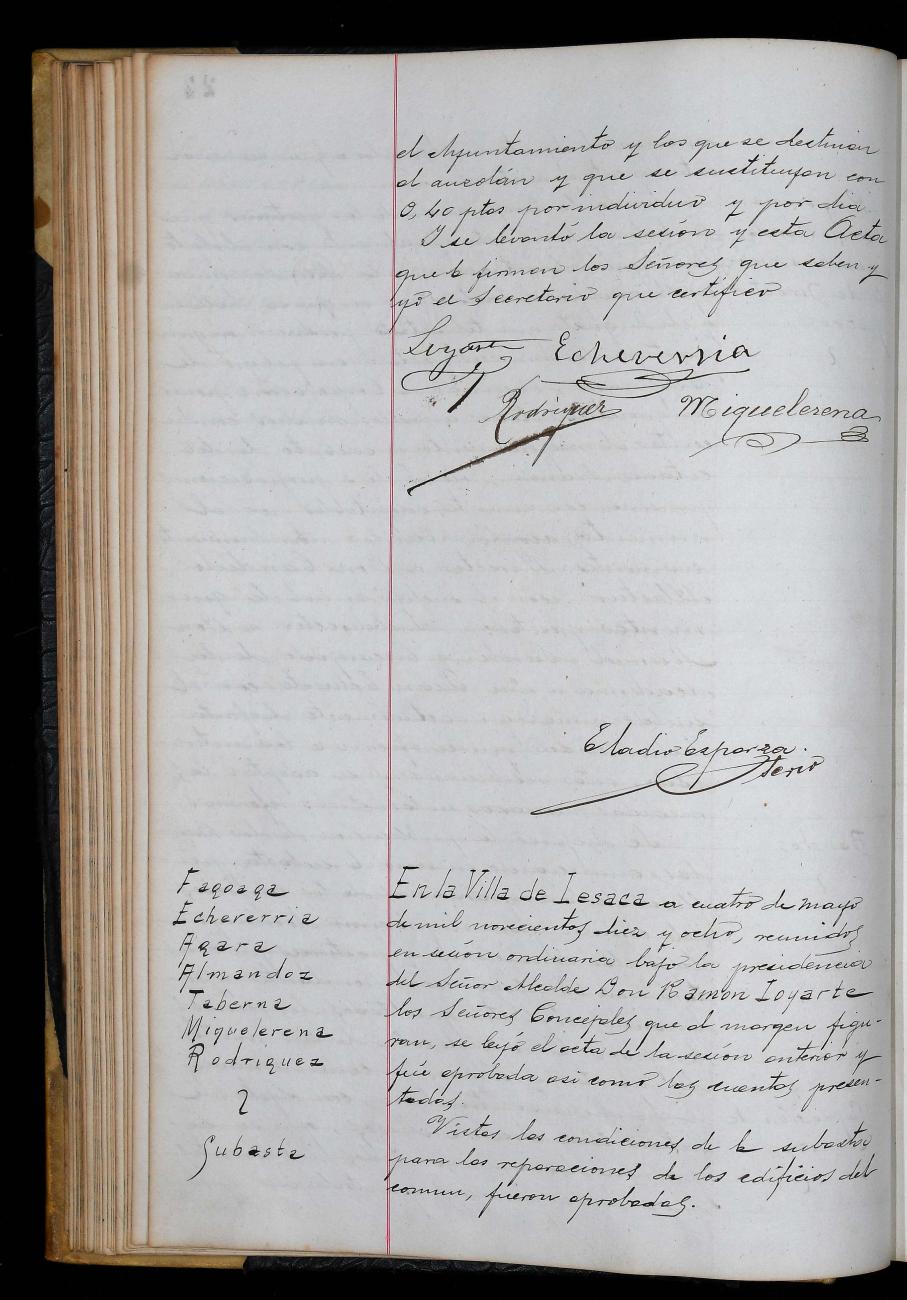 el Ayuntamiento y los que se destinan
al auzolán y que se sustituyan con
0,40 ptas por individuo y por dia.
Y se levantó la sesión y esta Acta
que la firman los Señores que saben y
yó el Secretario que certifico
Loyarte Echeverria
Rodriguez Miquelerena
Eladio Esparza.
Srerio
Fagoaga
Echeverria
Agara
Almandoz
Taberna
Miquelerena
Rodriguez
Subasta
En la Villa de Lesaca a cuatro de mayo
de mil novecientos diez y ocho, reunidos
en sesión ordinaria bajo la presidencia
del Señor Alcalde Don Ramón Loyarte
los Señores Concejales que al margen figu-
ran, se leyó el acta de la sesión anterior y
fué aprobada asi como las cuentas presen-
tadas.
Vistas las condiciones de la subasta
para las reparaciones de los edificios del
comun, fueron aprobadas.